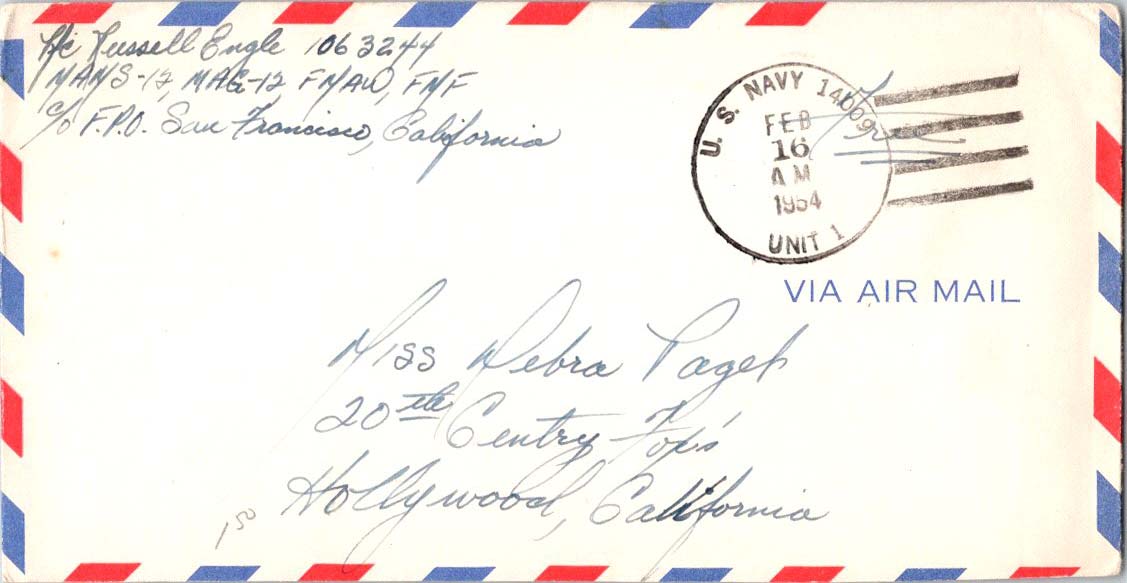 Pfc Russell Engle 1063244
MAMS-12, MAG-12 FMAW, FMF
c/o F.P.O. San Francisco, California
U. S. NAVY 14009
FEB
16
AM
1954
UNIT 1
Free
VIA AIR MAIL
Miss Debra Paget
20th Centry Fox's
Hollywood, California
150